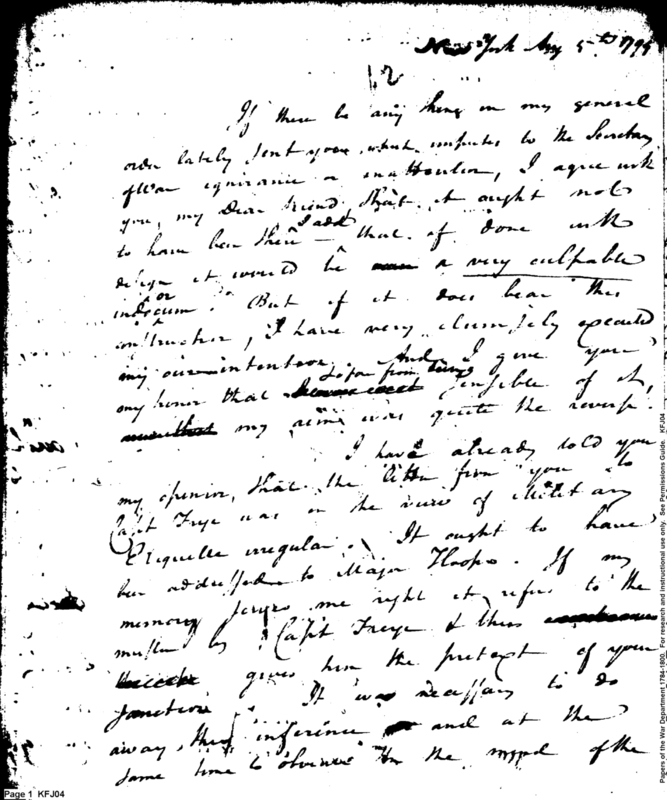 New York Aug 5th 1799
12
If there be any thing in my general
order lately sent you, which imputes to the Secretary
of War ignorance or inattention, I agree with
you, my Dear friend, that it ought not
to have been there – I add that if done with
design it would be a very culpable
indecorum. But if it does bear this
construction, I have very clumsily executed
my own intention. And I give you
my honor that so far from being sensible of it,
my aim was quite the reverse.
I have already told you
my opinion, that the letter from you to
Capt Freye was in the view of military
Etiquette irregular. It ought to have
been addressed to Major Hoops. If my
memory serves me right it refers to the
muster by Capt Freye & thus
gives him the pretext of your
sanction. It was necessary to do
away this inference and at the
same time to obviate in the mind of the
Page 1 KFJ04
Papers of the War Department 1784-1800. For research and instructional use only. See Permissions Guide. KFJ04